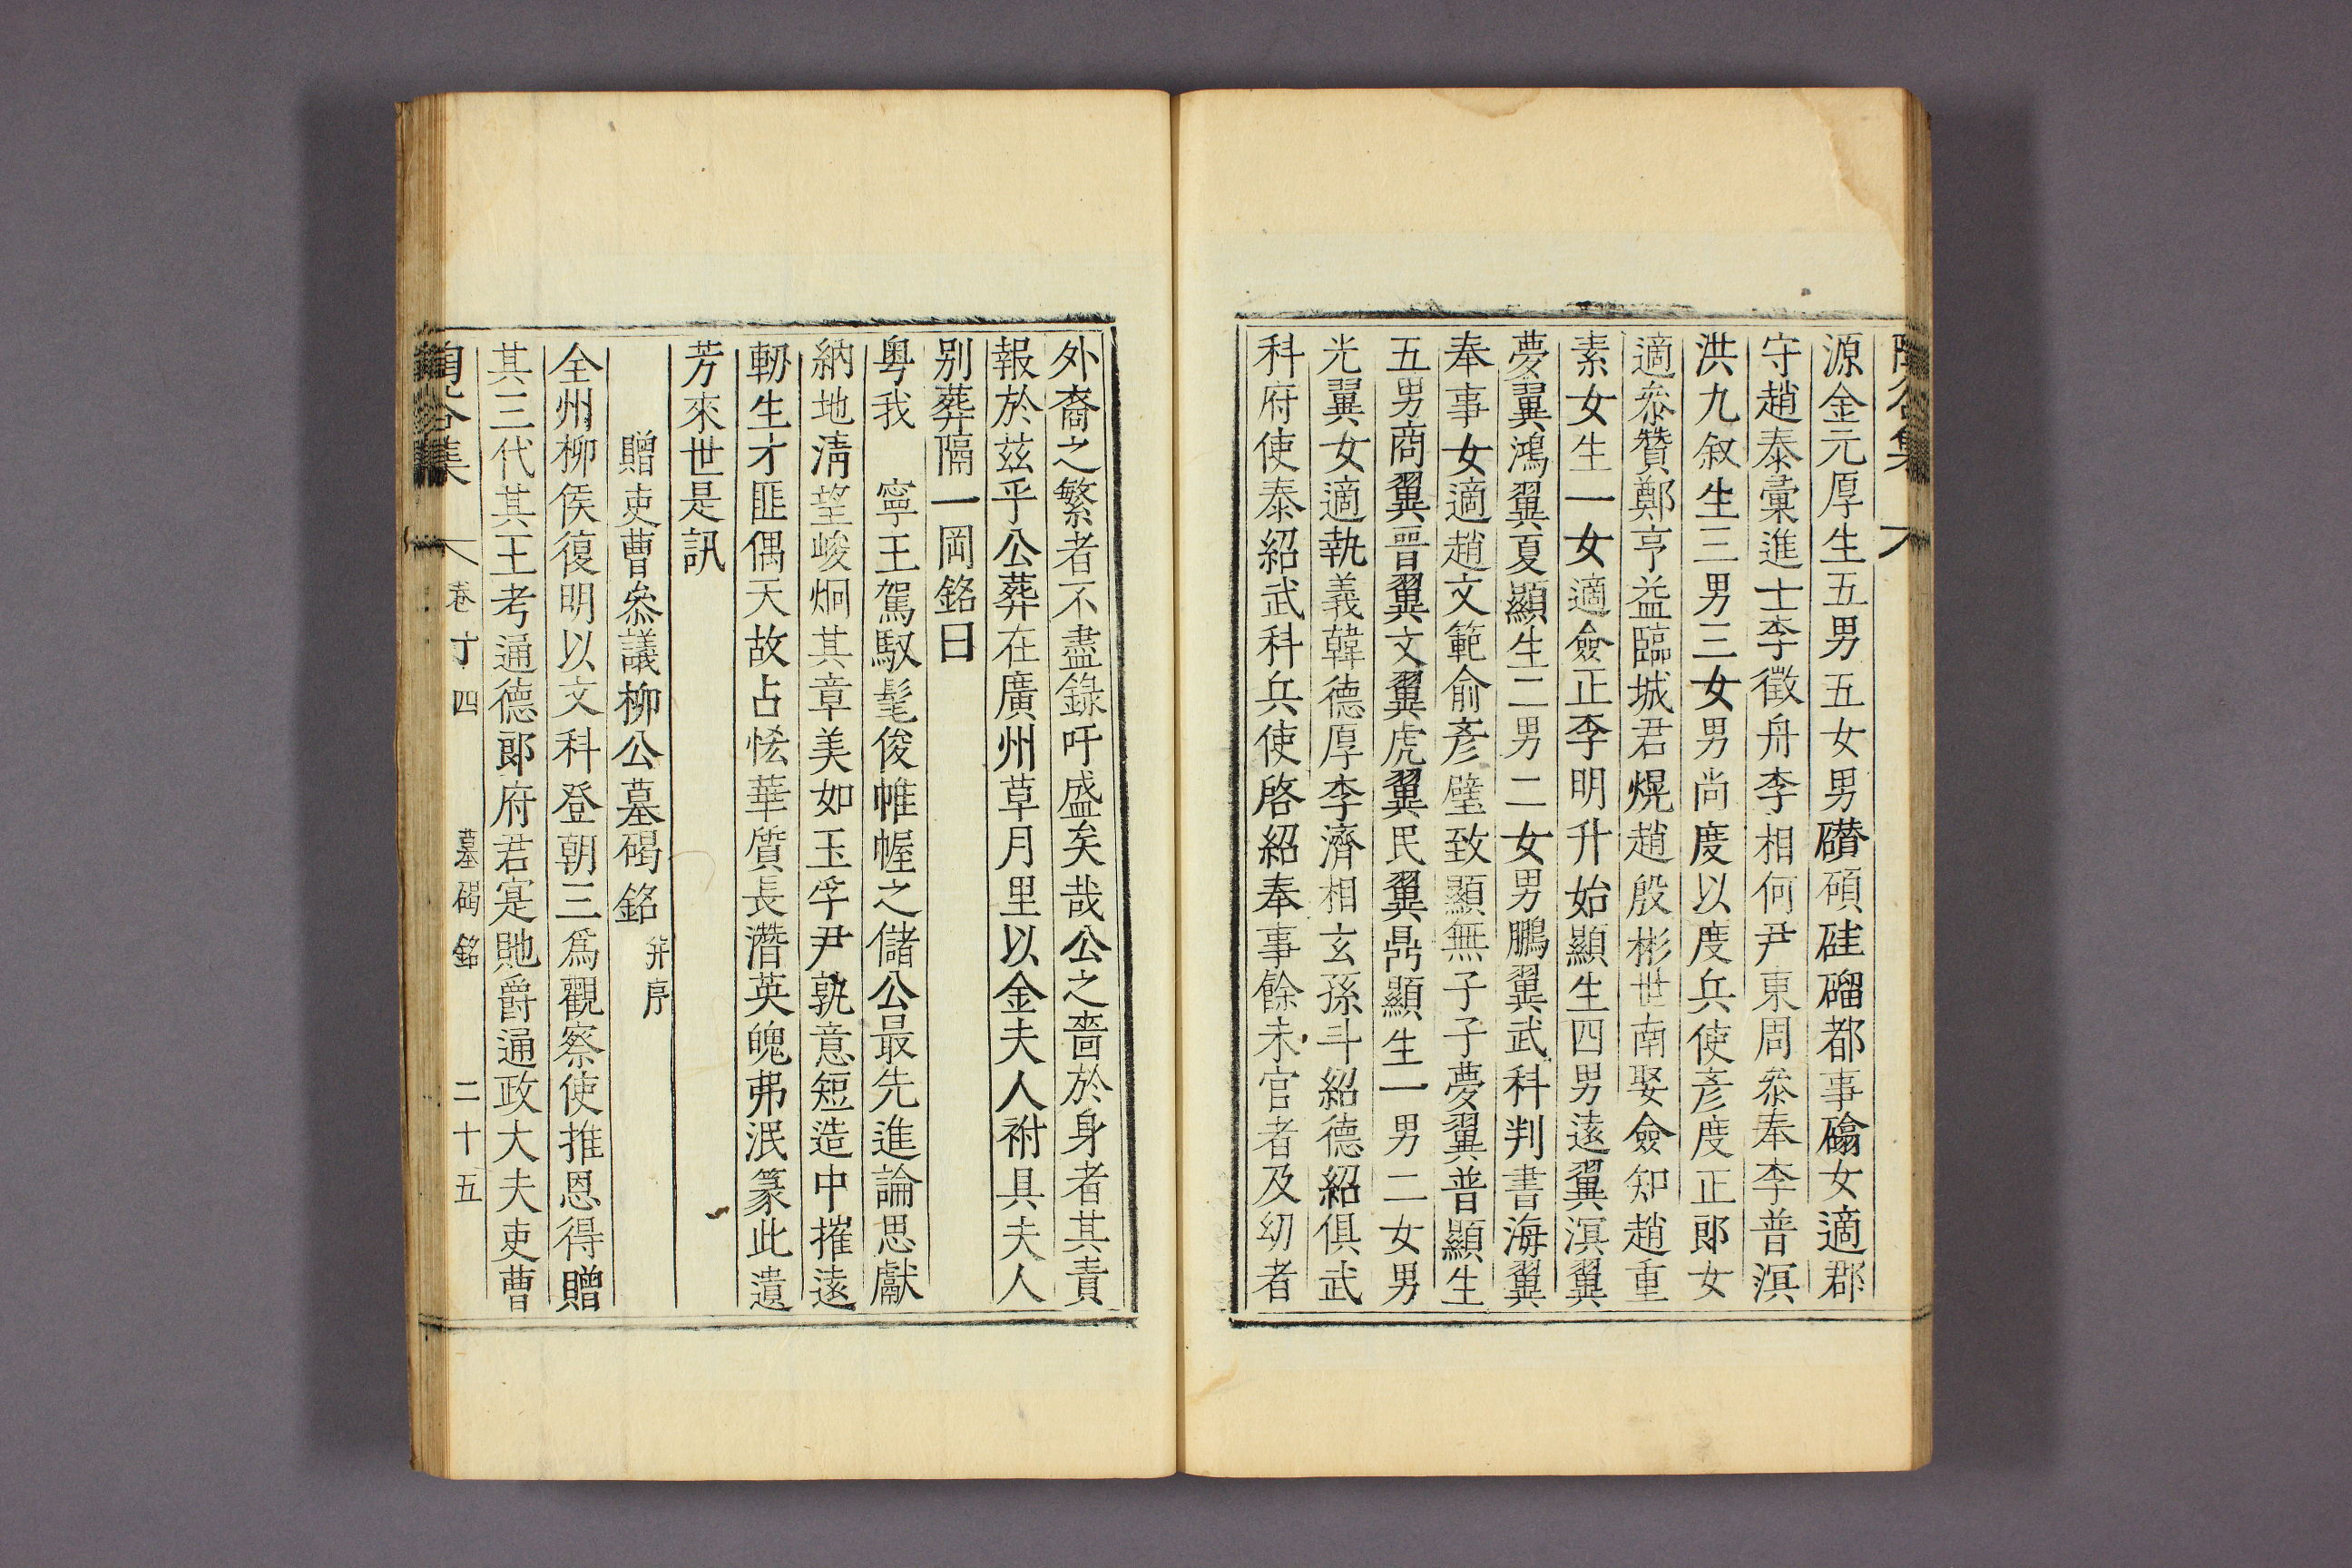 源金元厚生五男五女男礸碩硅磂都事碖女適郡
守趙泰彙進士李徵舟李相何尹東周叅奉李普溟
洪九敍生三男三女男尚度以度兵使彥度正郞女
適叅贊鄭亨益臨城君熀趙殷彬世南娶僉知趙重
素女生一女適僉正李明升始顯生四男遠翼溟翼
夢翼鴻翼夏顯生二男二女男鵬翼武科判書海翼
奉事女適趙文範俞彥璧致顯無子子夢翼普顯生
五男商翼晋翼文翼虎翼民翼鼎顯生一男二女男
光翼女適執義韓德厚李濟相玄孫斗紹德紹俱武
科府使泰紹武科兵使啓紹奉事餘未官者及幼者
外裔之繁者不盡錄吁盛矣哉公之嗇於身者其責
報於茲乎公葬在廣州草月里以金夫人祔具夫人
別葬隔一岡銘曰
粤我　寧王駕馭髦俊帷幄之儲公最先進論思獻
納地淸望峻烱其章美如玉孚尹孰意短造中摧遠
軔生才匪偶天故占恡華質長潛英魄弗泯篆此遺
芳來世是訊
贈吏曹叅議柳公墓碣銘 幷序
全州柳侯復明以文科登朝三爲觀察使推恩得贈
其三代其王考通德郞府君寔貤爵通政大夫吏曹
陶谷集 卷十四 墓碣銘 二十五